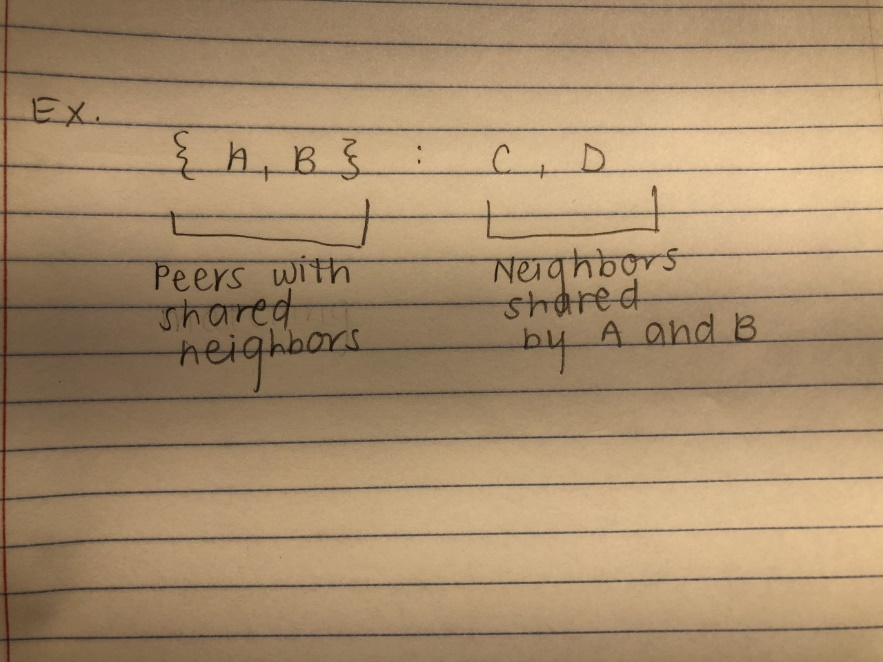 Ex.
{ A, B } : C, D
Peers with
shared
neighbors
Neighbors
shared
by A and B